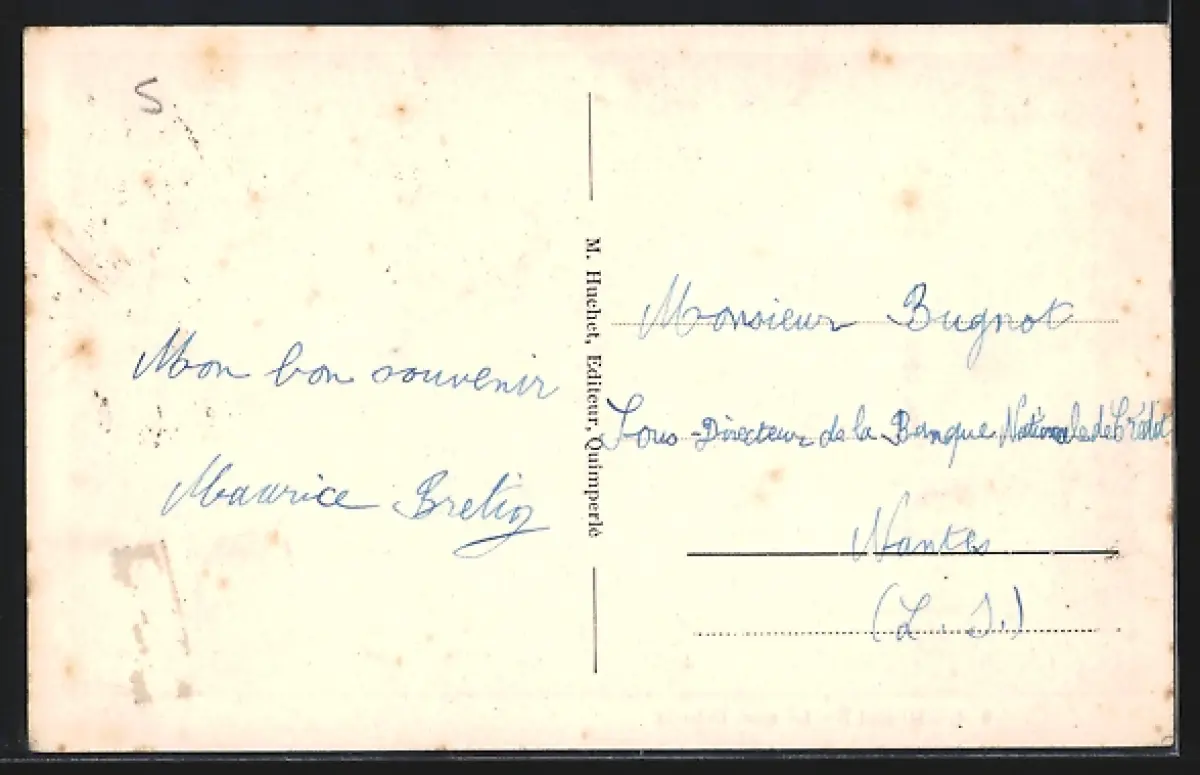 5
Mon bon souvenir
Maurice
M. Huchet, Editeur, Quimperlé
Monsieur Bugnot
Sous-Directeur de la Banque Nationale de Crédit
Nantes
(L. I.)